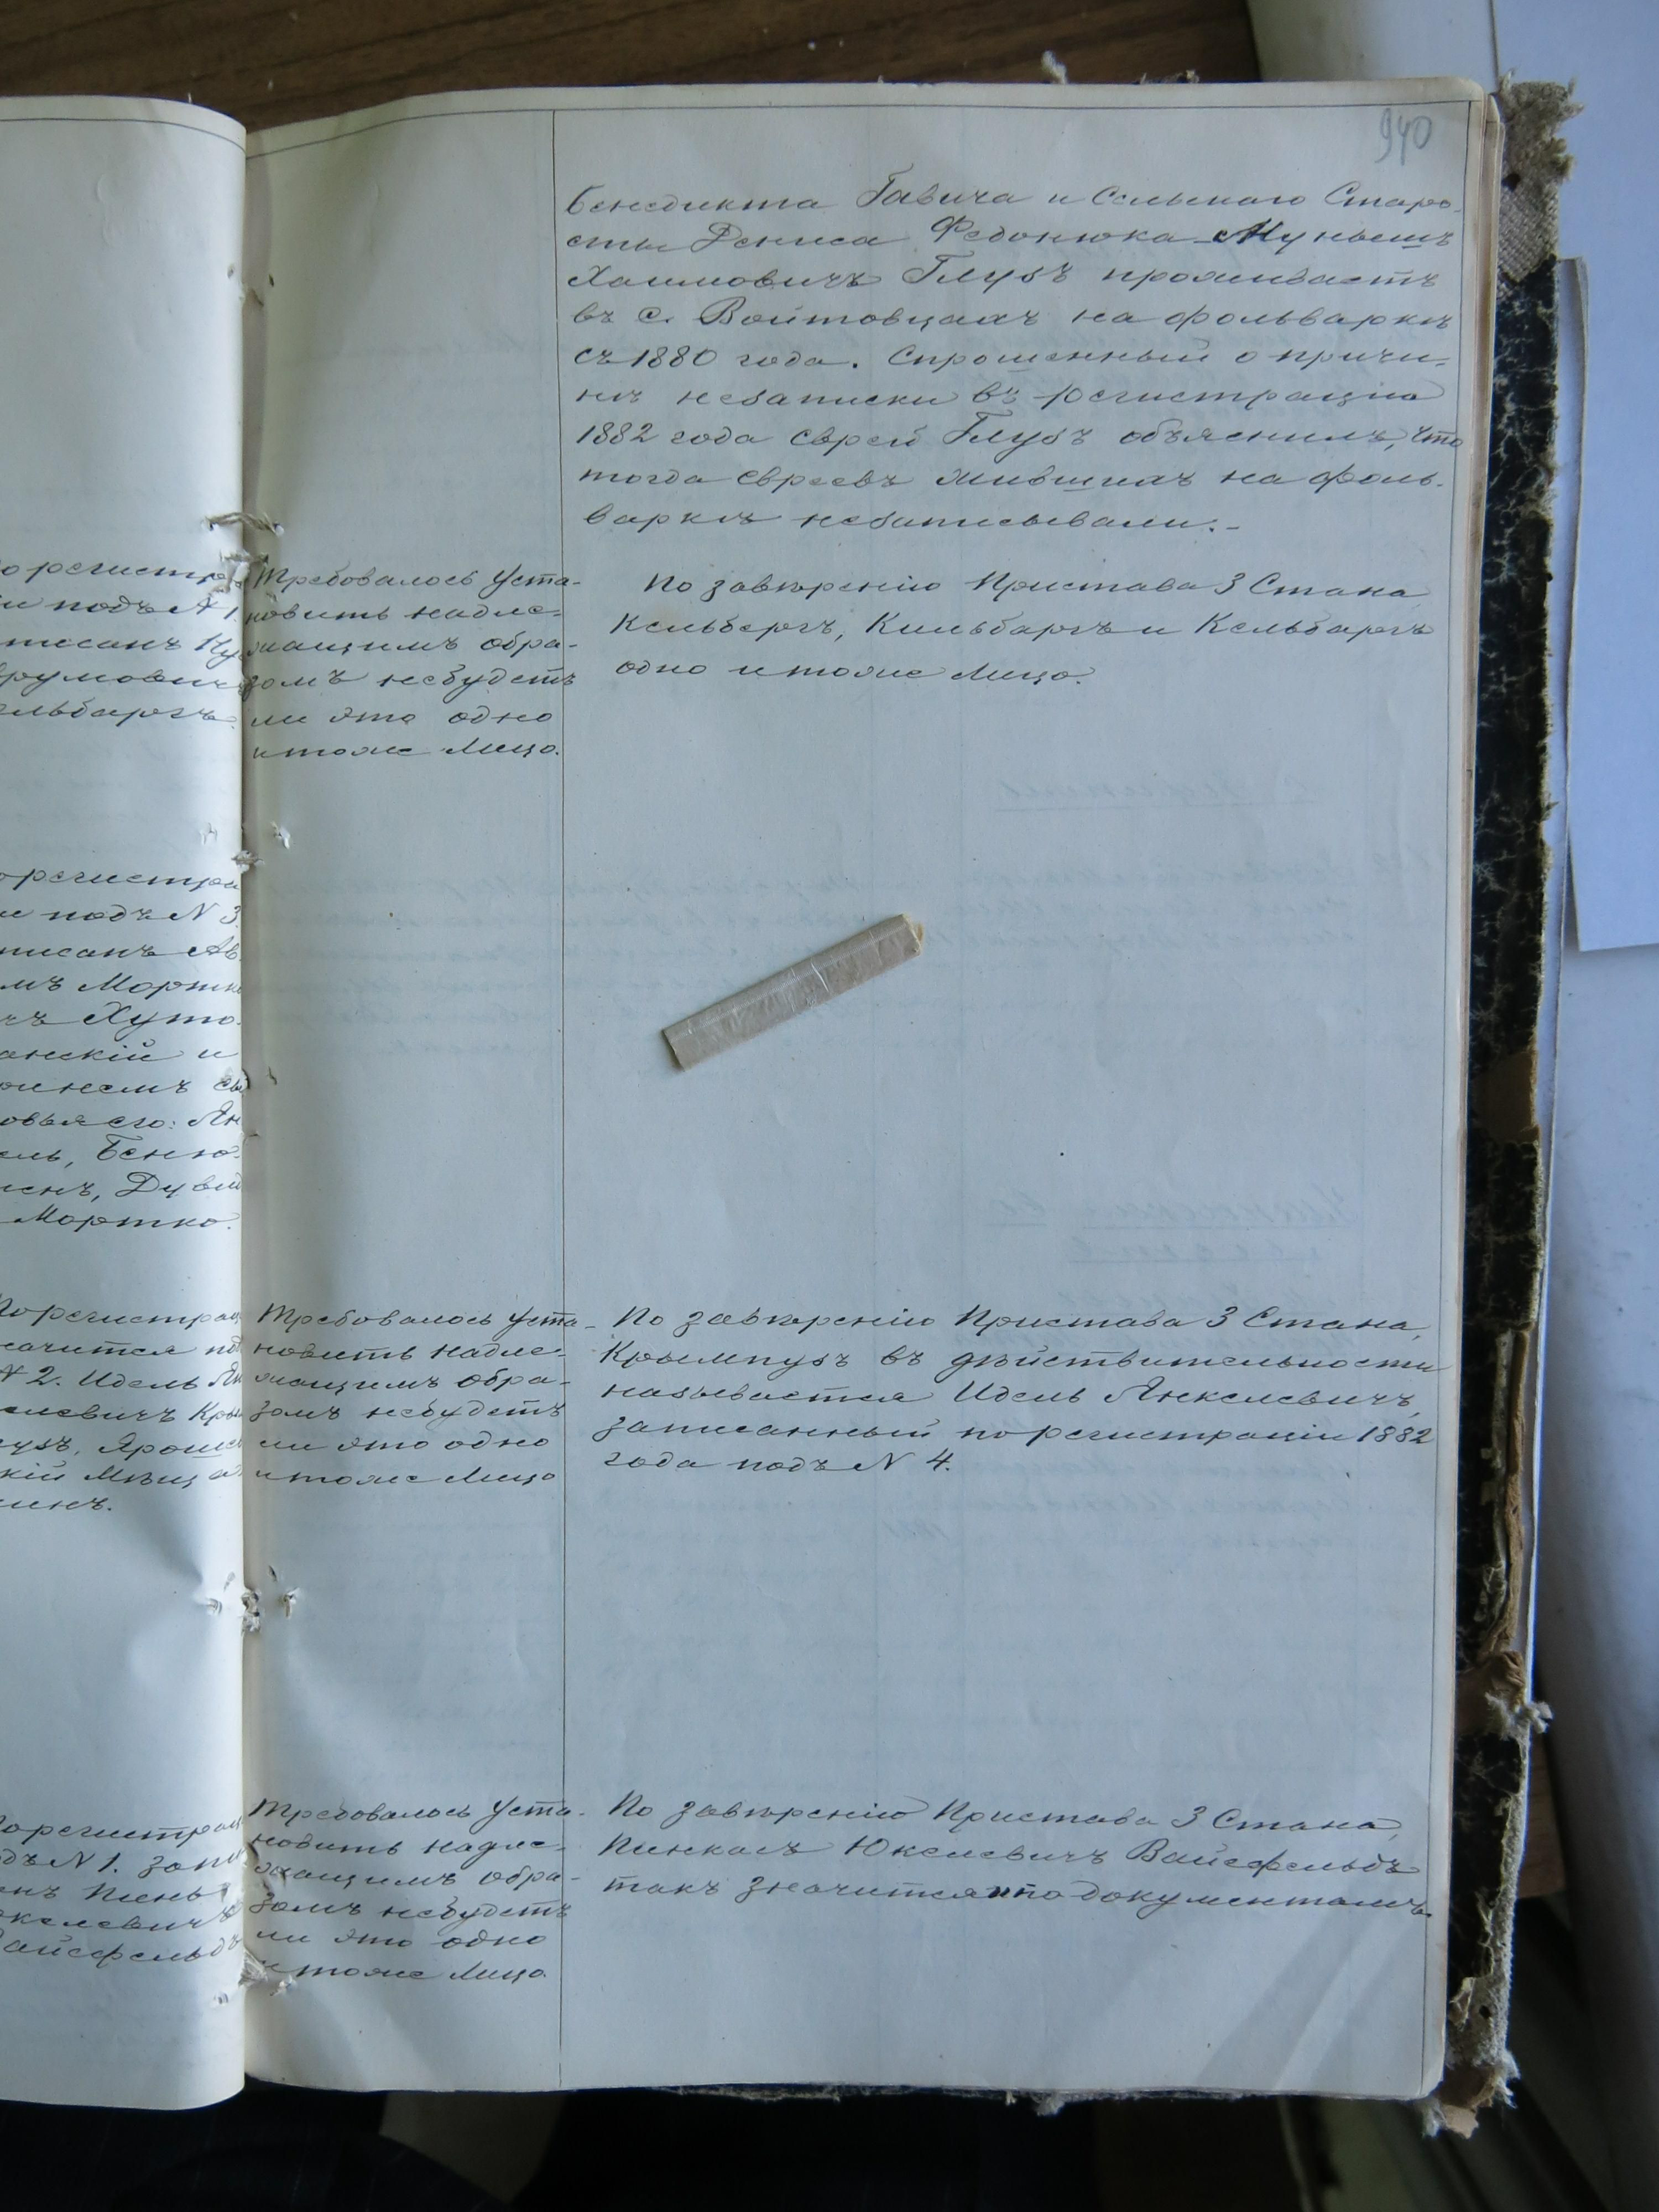 940
Бенедикта Гавича и Сельскаго Старо-
сты Дениса Федонюка Мунышъ
Хаимовичъ Глузъ проживаетъ
въ с. Войтовцахъ на фольваркѣ
съ 1880 года. Спрошенный о причи-
нѣ незаписки въ регистрацію
1882 года еврей Глузъ объяснилъ, что
тогда евреевъ жившихъ на фоль-
варкѣ незаписывали.-
о регистра
и подъ № 1.
писанъ
румович
ельбаргъ.
Требовалось Уста-
новить надле-
жащимъ обра-
зомъ небудетъ
ли это одно
и тоже Лицо.
По завѣренію Пристава 3 Стана,
Кельбергъ, Кильбаргъ и Кельбаргъ
одно и тоже Лицо.
о регистра
и подъ № 3.
писанъ Ав
мъ Мортко
чъ Хуто
анскій и
при немъ сы
овья его: Ян
ель, Беню
менъ, Дувид
Мортко.
По регистрац
значится по
№ 2. Идель Ян
елевичъ Кры
пузъ, Ярыше
кій Мѣща
нинъ.
Требовалось Уста-
новить надле-
жащимъ обра-
зомъ небудетъ
ли это одно
и тоже Лицо
По завѣренію Пристава 3 Стана,
Крымпузъ въ дѣйствительности
называется Идель Янкелевичъ,
записанный по регистраціи 1882
года подъ № 4.
По регистрац
дъ № 1. запи
анъ Пинь
Юкелевичъ
Вайсфельдъ
Требовалось Уста-
новить надле-
жащимъ обра-
зомъ небудетъ
ли это одно
и тоже Лицо.
По завѣренію Пристава 3 Стана,
Пинкасъ Юкелевичъ Вайсфельдъ
такъ значится и по документамъ.